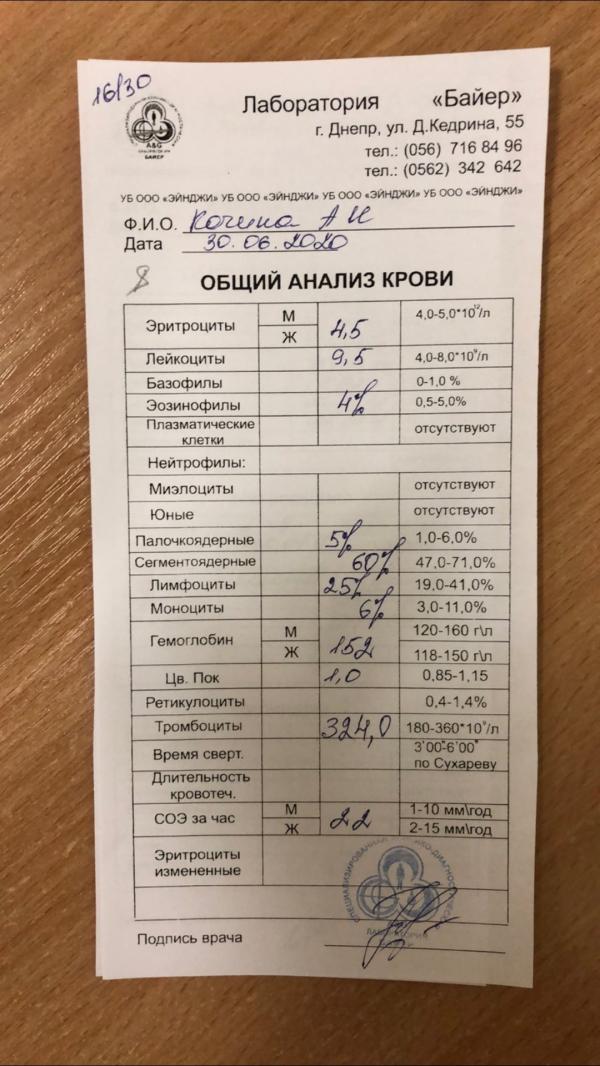 16/30
Лаборатория «Байер»
г. Днепр, ул. Д.Кедрина, 55
тел.: (056) 716 84 96
тел.: (0562) 342 642
A&G
ЛАБОРАТОРИЯ
БАЙЕР
УБ ООО «ЭЙНДЖИ» УБ ООО «ЭЙНДЖИ» УБ ООО «ЭЙНДЖИ» УБ ООО «ЭЙНДЖИ»
Ф.И.О. Кочина А И
Дата 30.06.2020
8
ОБЩИЙ АНАЛИЗ КРОВИ
Эритроциты М Ж 4,5 4,0-5,0*10¹²/л
Лейкоциты 9,5 4,0-8,0*10⁹/л
Базофилы 0-1,0 %
Эозинофилы 4% 0,5-5,0%
Плазматические клетки отсутствуют
Нейтрофилы:
Миэлоциты отсутствуют
Юные отсутствуют
Палочкоядерные 5% 1,0-6,0%
Сегментоядерные 60% 47,0-71,0%
Лимфоциты 25% 19,0-41,0%
Моноциты 6% 3,0-11,0%
Гемоглобин М 120-160 г\л
Ж 152 118-150 г\л
Цв. Пок 1,0 0,85-1,15
Ретикулоциты 0,4-1,4%
Тромбоциты 324,0 180-360*10⁹/л
Время сверт. 3'00"-6'00" по Сухареву
Длительность кровотеч.
СОЭ за час М 1-10 мм\год
Ж 22 2-15 мм\год
Эритроциты измененные
Подпись врача